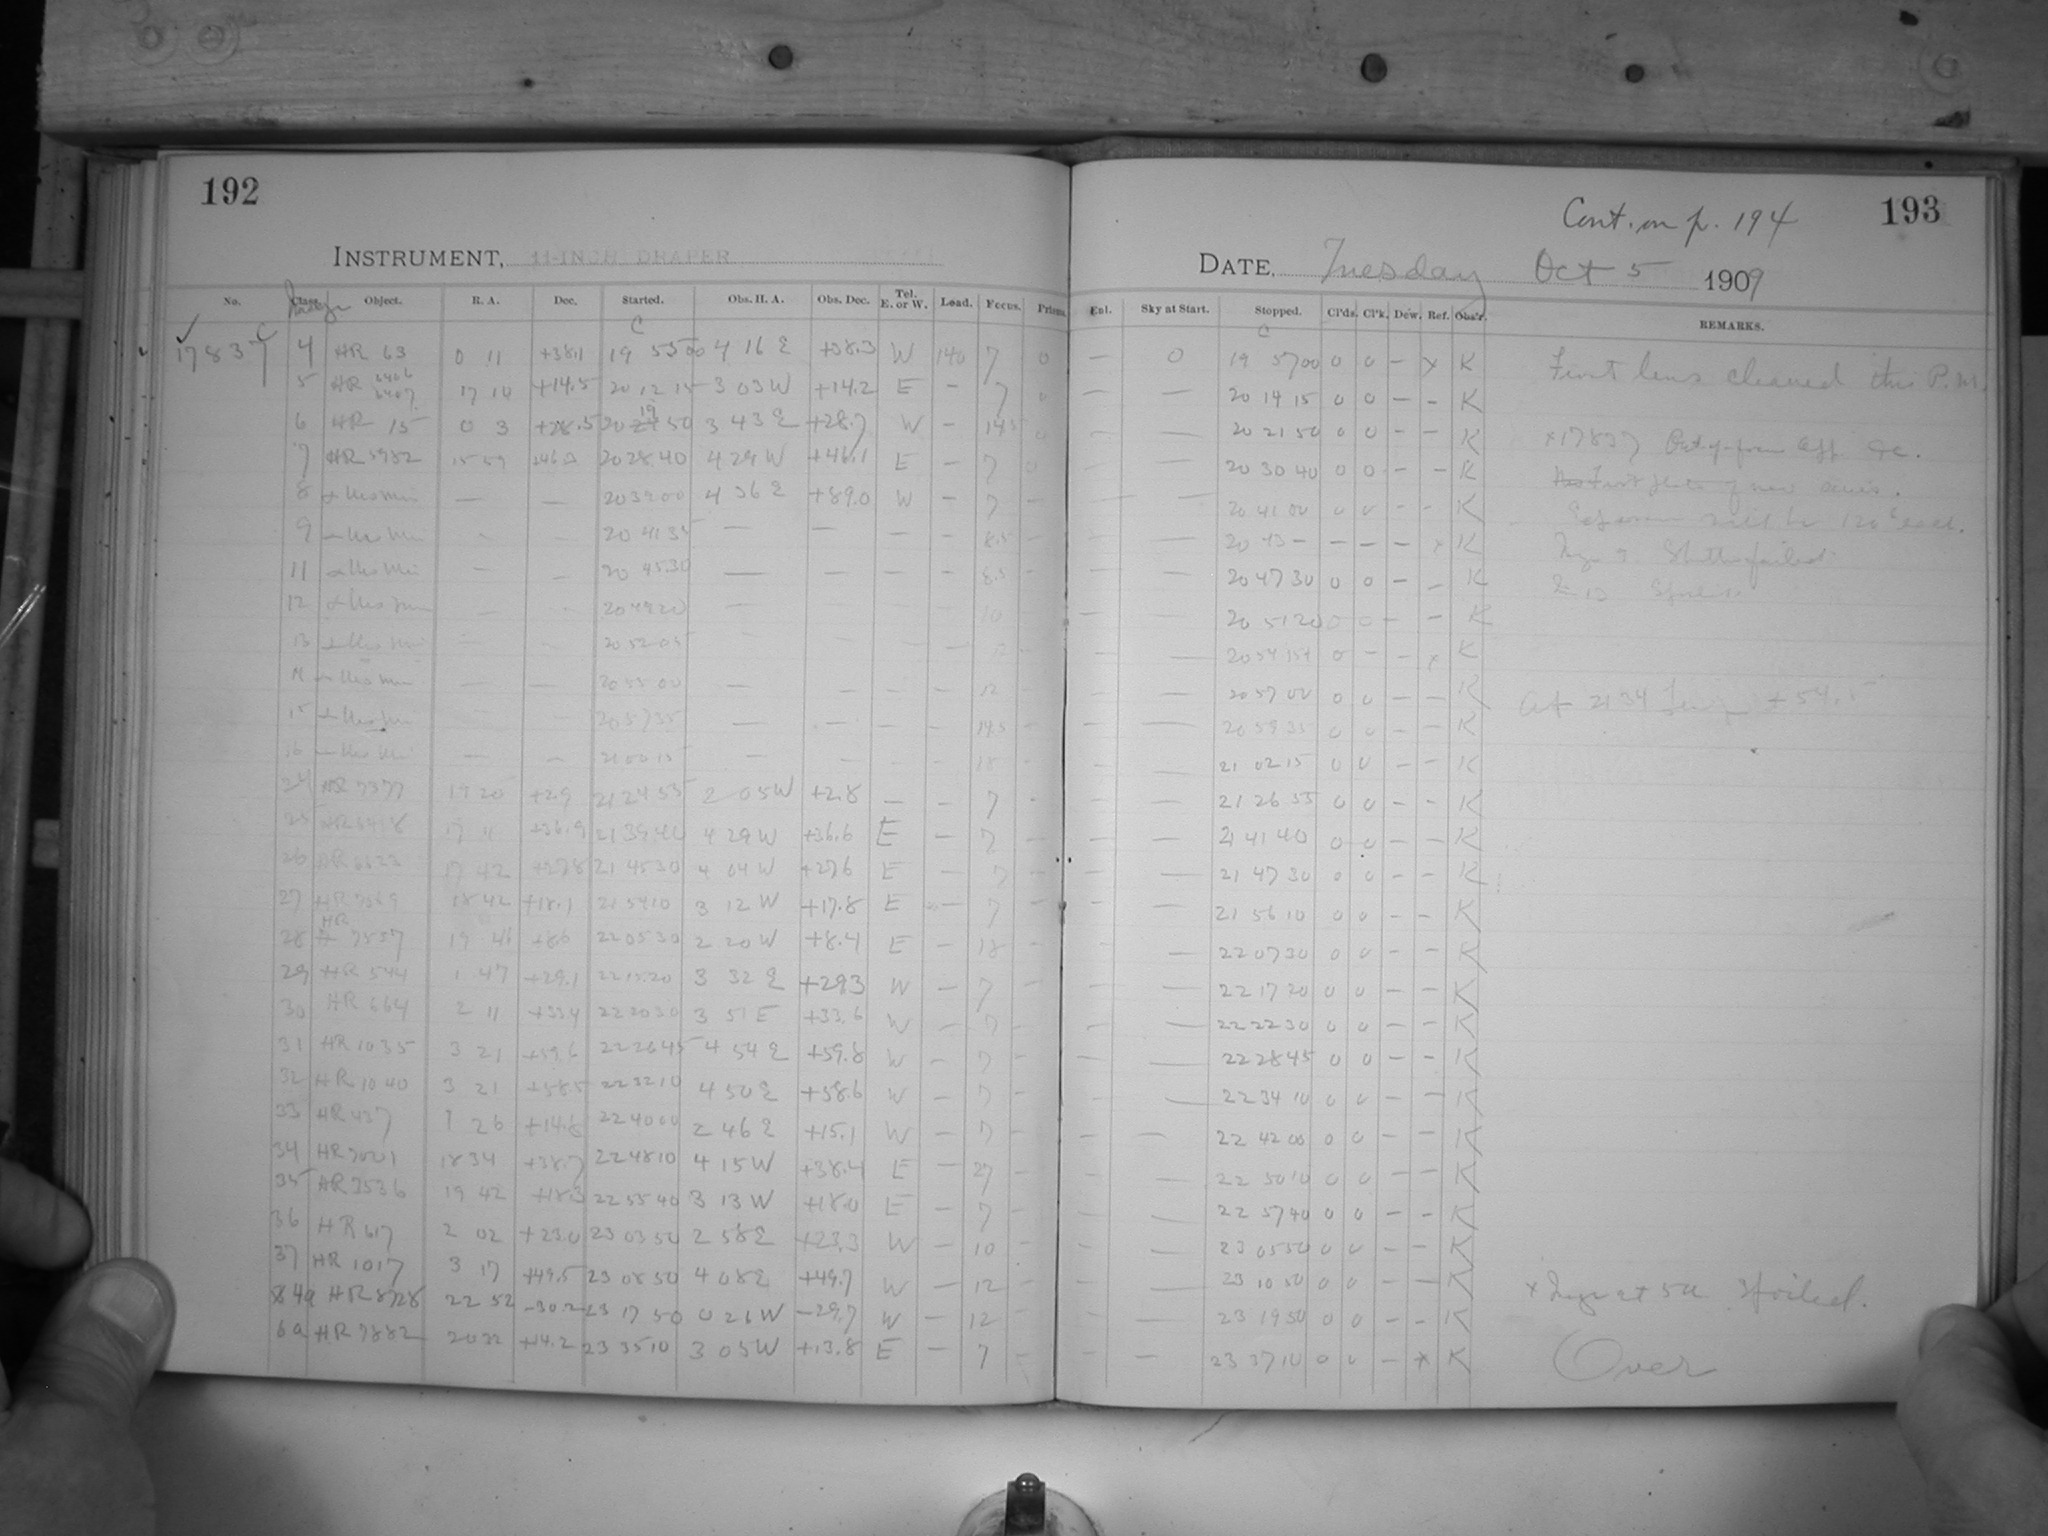 192
INSTRUMENT, 11-INCH DRAPER
No. Class Object. R. A. Dec. Started. Obs. H. A. Obs. Dec. Tel. E. or W. Load. Focus. Prisms.
Image
C
17837 C 4 HR 63 0 11 +38.1 19 55 00 4 16 E +38.3 W 140 7 0
5 HR 6406 6407 17 10 +14.5 20 12 15 3 03 W +14.2 E — 7 0
6 HR 15 0 3 +28.5 20 19 50 3 43 E +28.7 W — 14.5 0
7 HR 5982 15 59 20 28 40 4 29 W +46.1 E — 7 0
8 α Urs Min — — 20 39 00 4 36 E +89.0 W — 7 —
9 α Urs Min - - 20 41 35 — — — — 8.5 —
11 α Urs Min — — 20 45 30 — — — — 8.5 —
12 α Urs Min — — 20 49 20 — — — — 10
13 α Urs Min — — 20 52 05 — — — — 12 —
14 α Urs Min — — 20 55 00 — — — — 12 —
15 α Urs Min — — 20 57 35 — — — — 14.5 —
16 α Urs Min — — 21 00 15 — — — — 18 —
24 HR 7377 19 20 +2.9 21 24 55 2 05 W +2.8 — — 7 -
25 HR 6418 17 11 +36.9 21 39 40 4 29 W +36.6 E — 7 —
26 HR 6623 17 42 +27.8 21 45 30 4 04 W +27.6 E — 7 —
27 HR 7069 18 42 +18.1 21 54 10 3 12 W +17.8 E — 7 —
28 HR 7557 19 46 +8.6 22 05 30 2 20 W +8.4 E — 18 —
29 HR 544 1 47 +29.1 22 15 20 3 32 E +29.3 W — 7 —
30 HR 664 2 11 +33.4 22 20 30 3 51 E +33.6 W — 7 —
31 HR 1035 3 21 +59.6 22 26 45 4 54 E +59.8 W — 7 —
32 HR 1040 3 21 +58.5 22 32 10 4 50 E +58.6 W — 7 —
33 HR 437 1 26 +14.8 22 40 00 2 46 E +15.1 W — 7 —
34 HR 7001 18 34 +38.7 22 48 10 4 15 W +38.4 E — 27 —
35 HR 7536 19 42 +18.3 22 55 40 3 13 W +18.0 E — 7 —
36 HR 617 2 02 +23.0 23 03 50 2 58 E +23.3 W — 10 —
37 HR 1017 3 17 +49.5 23 08 50 4 08 E +49.7 W — 12 —
49 HR 8728 22 52 -30.2 23 17 50 0 26 W -29.7 W — 12 —
HR 7882 20 32 +14.2 23 35 10 3 05 W +13.8 E — 7 —
Cont. on p. 194 193
DATE, Tuesday Oct 5 1909
Enl. Sky at Start. Stopped. Cl'ds. Cl'k. Dew. Ref. Obs'r. REMARKS.
C
— 0 19 57 00 0 0 — x K First lens cleaned this P.M.
— — 20 14 15 0 0 — — K
— — 20 21 50 0 0 — — K x 17837
— — 20 30 40 0 0 — — K First plate of new series.
— — 20 41 00 0 0 — — K Exposures will be 120 s each.
— — 20 43 — — — — x K Shutter failed
— — 20 47 30 0 0 — — K
— — 20 51 20 0 0 — — K
— — 20 54 0 — — x K
— — 20 57 00 0 0 — — K At 21 34 +54.5
— — 20 59 35 0 0 — — K
— — 21 02 15 0 0 — — K
— — 21 26 55 0 0 — — K
— — 21 41 40 0 0 — — K
— — 21 47 30 0 0 — — K
— — 21 56 10 0 0 — — K
— — 22 07 30 0 0 — — K
— — 22 17 20 0 0 — — K
— — 22 22 30 0 0 — — K
— — 22 28 45 0 0 — — K
— — 22 34 10 0 0 — — K
— — 22 42 00 0 0 — — K
— — 22 50 10 0 0 — — K
— — 22 57 40 0 0 — — K
— — 23 05 50 0 0 — — K
— — 23 10 50 0 0 — — K
— — 23 19 50 0 0 — — K x Spoiled.
— — 23 37 10 0 0 — x K Over